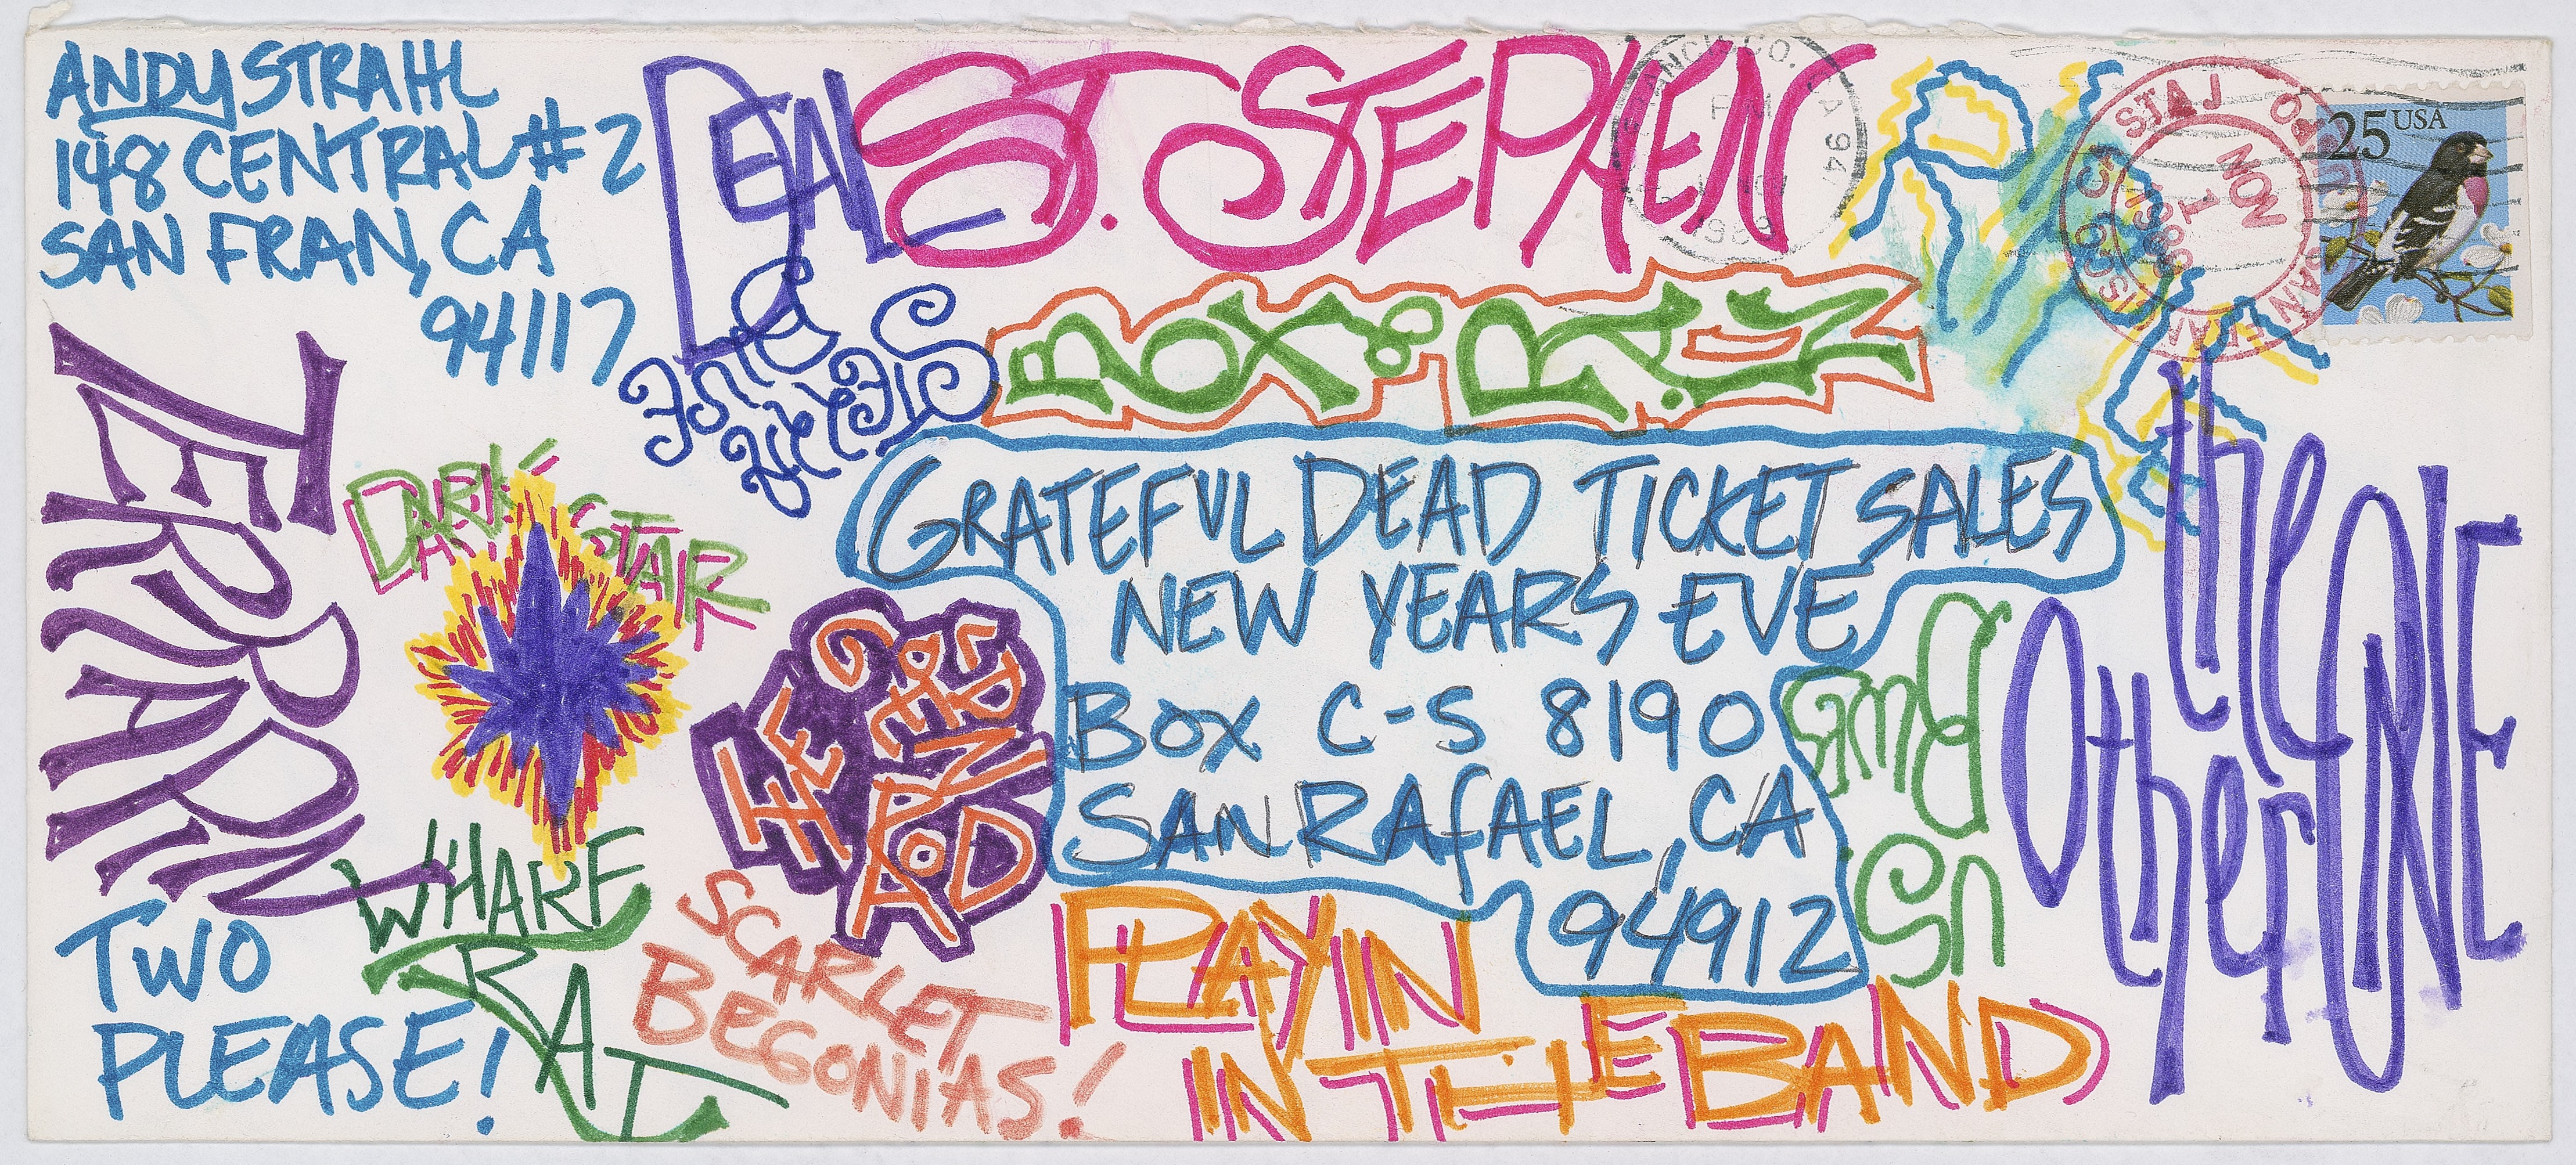 ANDY STRAHL
148 CENTRAL #2
SAN FRAN, CA
94117
DEAL
ST. STEPHEN
SAN FRANCISCO, CA 941
PM
1989
NOV
1
1989
25 USA
STELLA
BLUE
BOX of RAIN
GRATEFUL DEAD TICKET SALES
NEW YEARS EVE
BOX C-S 8190
SAN RAFAEL, CA
94912
TERRAPIN
DARK STAR
THE
ROAD
US
BLUES
the
Other
ONE
WHARF
RAT
SCARLET
BEGONIAS!
PLAYIN
IN THE BAND
TWO
PLEASE!